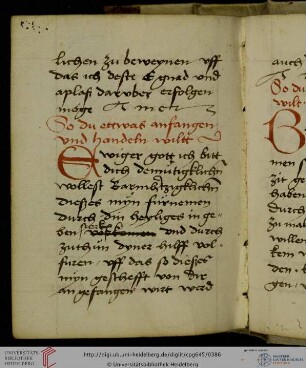 lichen zu beweynen vff
das ich deste E gnad vnd
aplaß dar vber erfolgen
möge Amen
So du ettwas anfangen
vnd handeln wilt
Ewiger gott ich bitt
dich demütigklichn
wollest Barmhertzigklichn
dieses myn fürnemen
durch din heyliges in ge-
ben vnd durch
zuthun dyner hilff vol-
füren vff das so dieses
myn geschefft von dir
angefangen wirt werd
auch
So du
wilt
men s
zit ge
haben
Durch
zu mal
wollen
kem v
den
gen
UNIVERSITÄTS-
BIBLIOTHEK
HEIDELBERG
http://digi.ub.uni-heidelberg.de/diglit/cpg645/0386
© Universitätsbibliothek Heidelberg